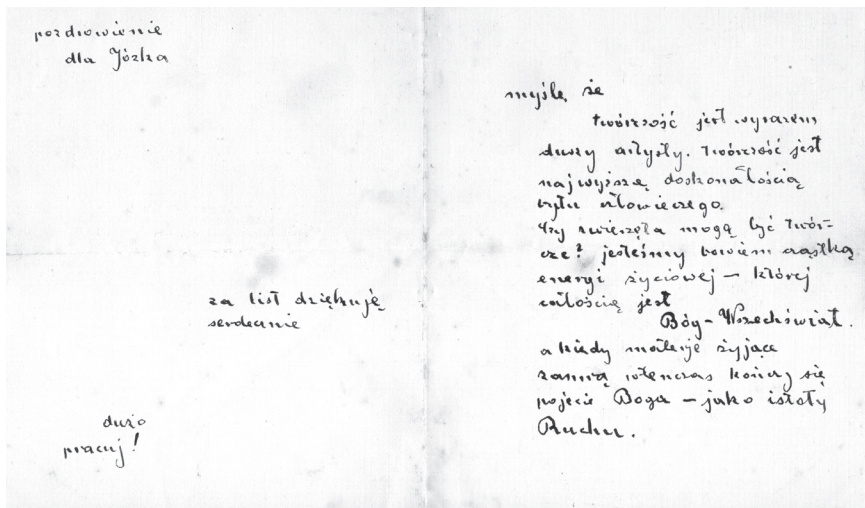 pozdrowienie
dla Józka
za list dziękuję
serdecznie
dużo
pracuj!
myślę że
twórczość jest wyrazem
duszy artysty. twórczość jest
najwyższą doskonałością
bytu człowieczego.
czy zwierzęta mogą być twór-
cze? jesteśmy bowiem cząstką
energi życiowej – której
całością jest
Bóg – Wszechświat.
a kiedy materje żyjące
zamrą wtenczas kończy się
pojęcie Boga – jako istoty
Ruchu.